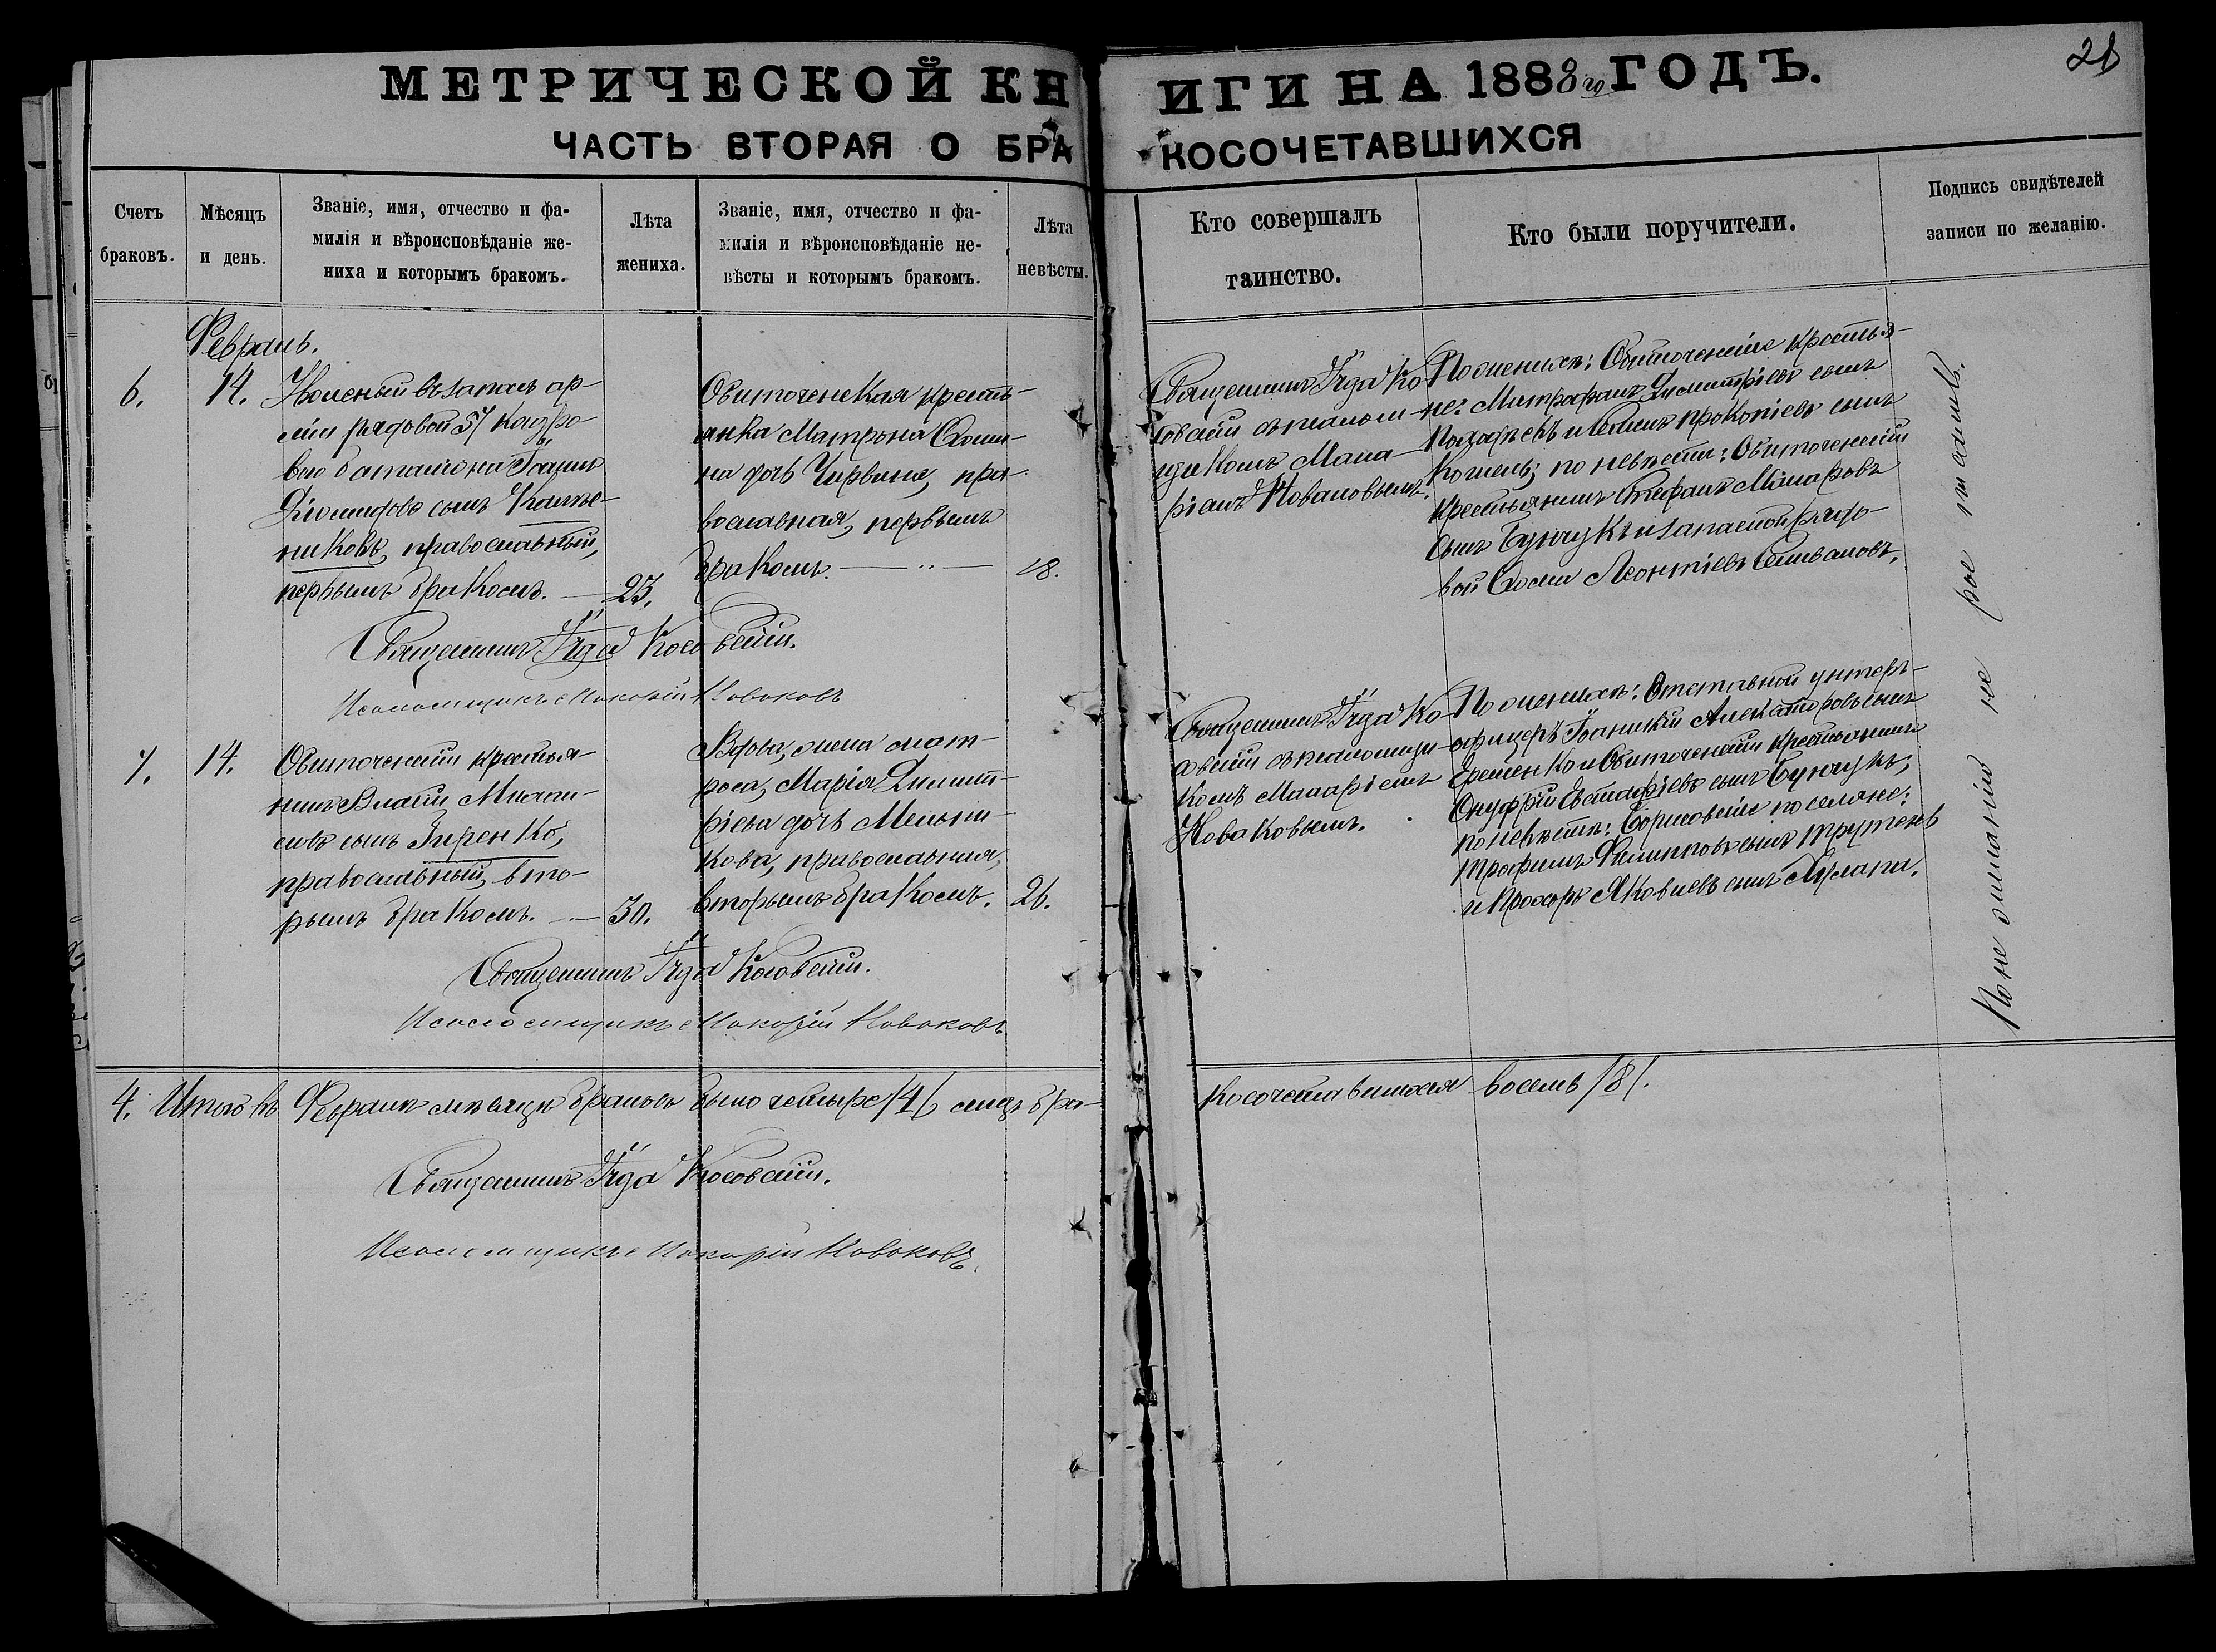 МЕТРИЧЕСКОЙ КНИГИ НА 1888го ГОДЪ.
28
ЧАСТЬ ВТОРАЯ О БРАКОСОЧЕТАВШИХСЯ
Счетъ браковъ.
Мѣсяцъ и день.
Званіе, имя, отчество и фа-
милія и вѣроисповѣданіе же-
ниха и которымъ бракомъ.
Лѣта жениха.
Званіе, имя, отчество и фа-
милія и вѣроисповѣданіе не-
вѣсты и которымъ бракомъ.
Лѣта невѣсты.
Кто совершалъ
таинство.
Кто были поручители.
Подпись свидѣтелей
записи по желанію.
Февраль.
6.
14.
въ запасъ ар-
міи рядовой 57 кадро-
ваго баталіона Іоаннъ
сынъ
православный,
первымъ бракомъ.
23.
Обиточенская кресть-
янка Матрона
на дочь Червина, пра-
вославная, первымъ
бракомъ.
18.
Священникъ Іуда Ко-
совскій съ псаломщ-
щикомъ Мака-
ріемъ Новаковымъ.
По женихѣ: Обиточенскіе крестья-
не: Митрофанъ Димитріевъ сынъ
прокопіевъ сынъ
Кошель; по невѣсти: Обиточенскій
крестьянинъ Стефанъ
сынъ Бунчукъ и запасной рядо-
вой Леонтіевъ Селивановъ.
Священникъ Іуда Косовскій.
Псаломщикъ Макарій Новаковъ
7.
14.
Обиточенскій крестья-
нинъ
сынъ Гиренко,
православный, вто-
рымъ бракомъ.
30.
Вдова, жена мат-
роса, Марія Димит-
ріева дочь Мельни-
кова, православная,
вторымъ бракомъ.
26.
Священникъ Іуда Ко-
совскій съ псаломщи-
комъ Макаріемъ
Новаковымъ.
По женихѣ: Отставной унтеръ-
офицеръ Іоанникій сынъ
Еременко и Обиточенскій крестьянинъ
Онуфрій Евстафіевъ сынъ Бунчукъ;
по невѣсти: поселяне:
Трофимъ Филипповъ сынъ Трутень
и Прохоръ Яковлевъ сынъ
По не желанію не
Священникъ Іуда Косовскій.
Псаломщикъ Макарій Новаковъ
4. Итого въ Февралѣ мѣсяцѣ браковъ было четыре /4/, лицъ бра-
косочетавшихся восемь /8/.
Священникъ Іуда Косовскій.
Псаломщикъ Макарій Новаковъ.